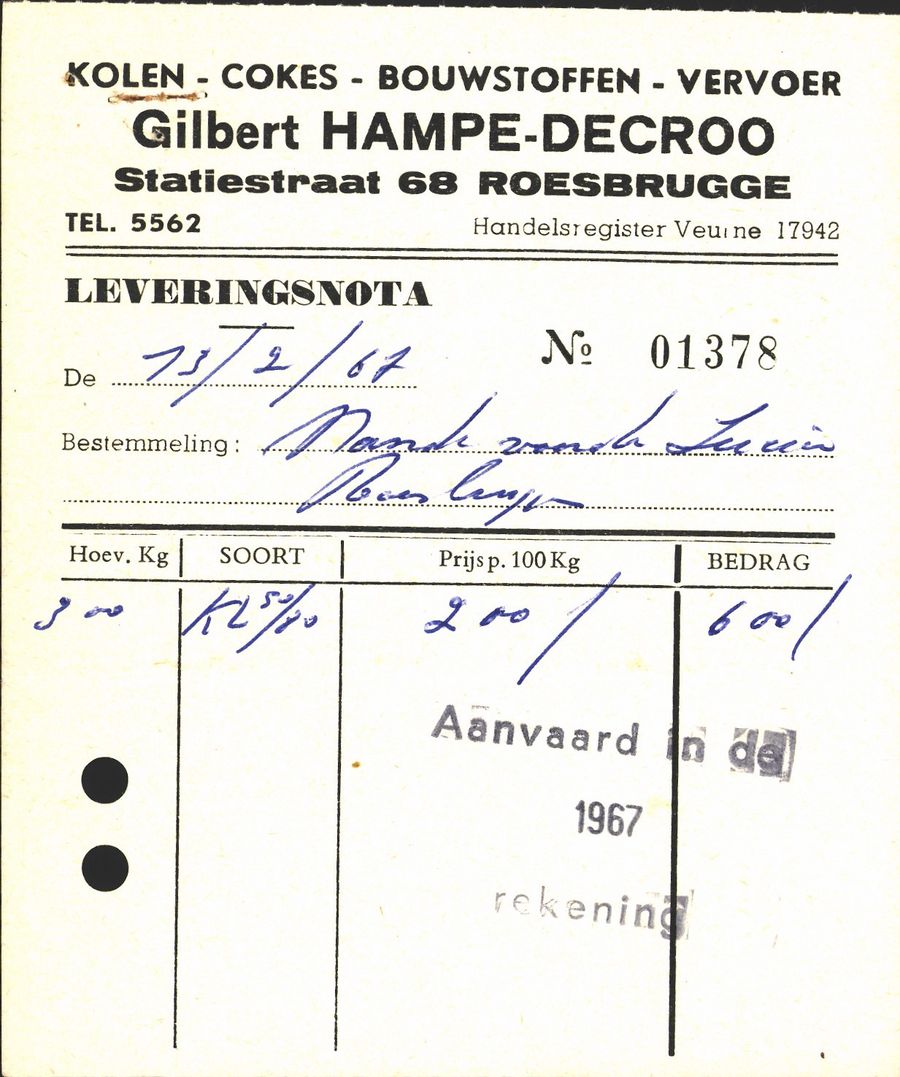 KOLEN - COKES - BOUWSTOFFEN - VERVOER
Gilbert HAMPE-DECROO
Statiestraat 68 ROESBRUGGE
TEL. 5562 Handelsregister Veurne 17942
LEVERINGSNOTA
De 13/2/67 Nº 01378
Bestemmeling:
Hoev. Kg SOORT Prijs p. 100 Kg BEDRAG
300 KL 50/80 200/ 600/
Aanvaard in de
1967
rekening